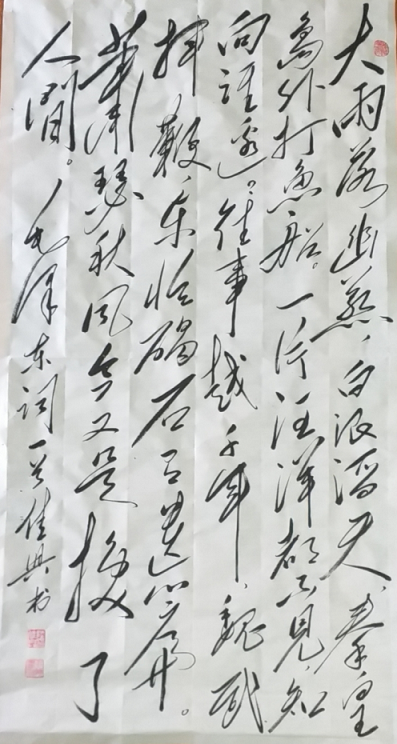 大雨落幽燕，白浪滔天，秦皇
岛外打鱼船。一片汪洋都不见，知
向谁边？往事越千年，魏武
挥鞭，东临碣石有遗篇。
萧瑟秋风今又是，换了
人间。毛泽东词一首佳兴书